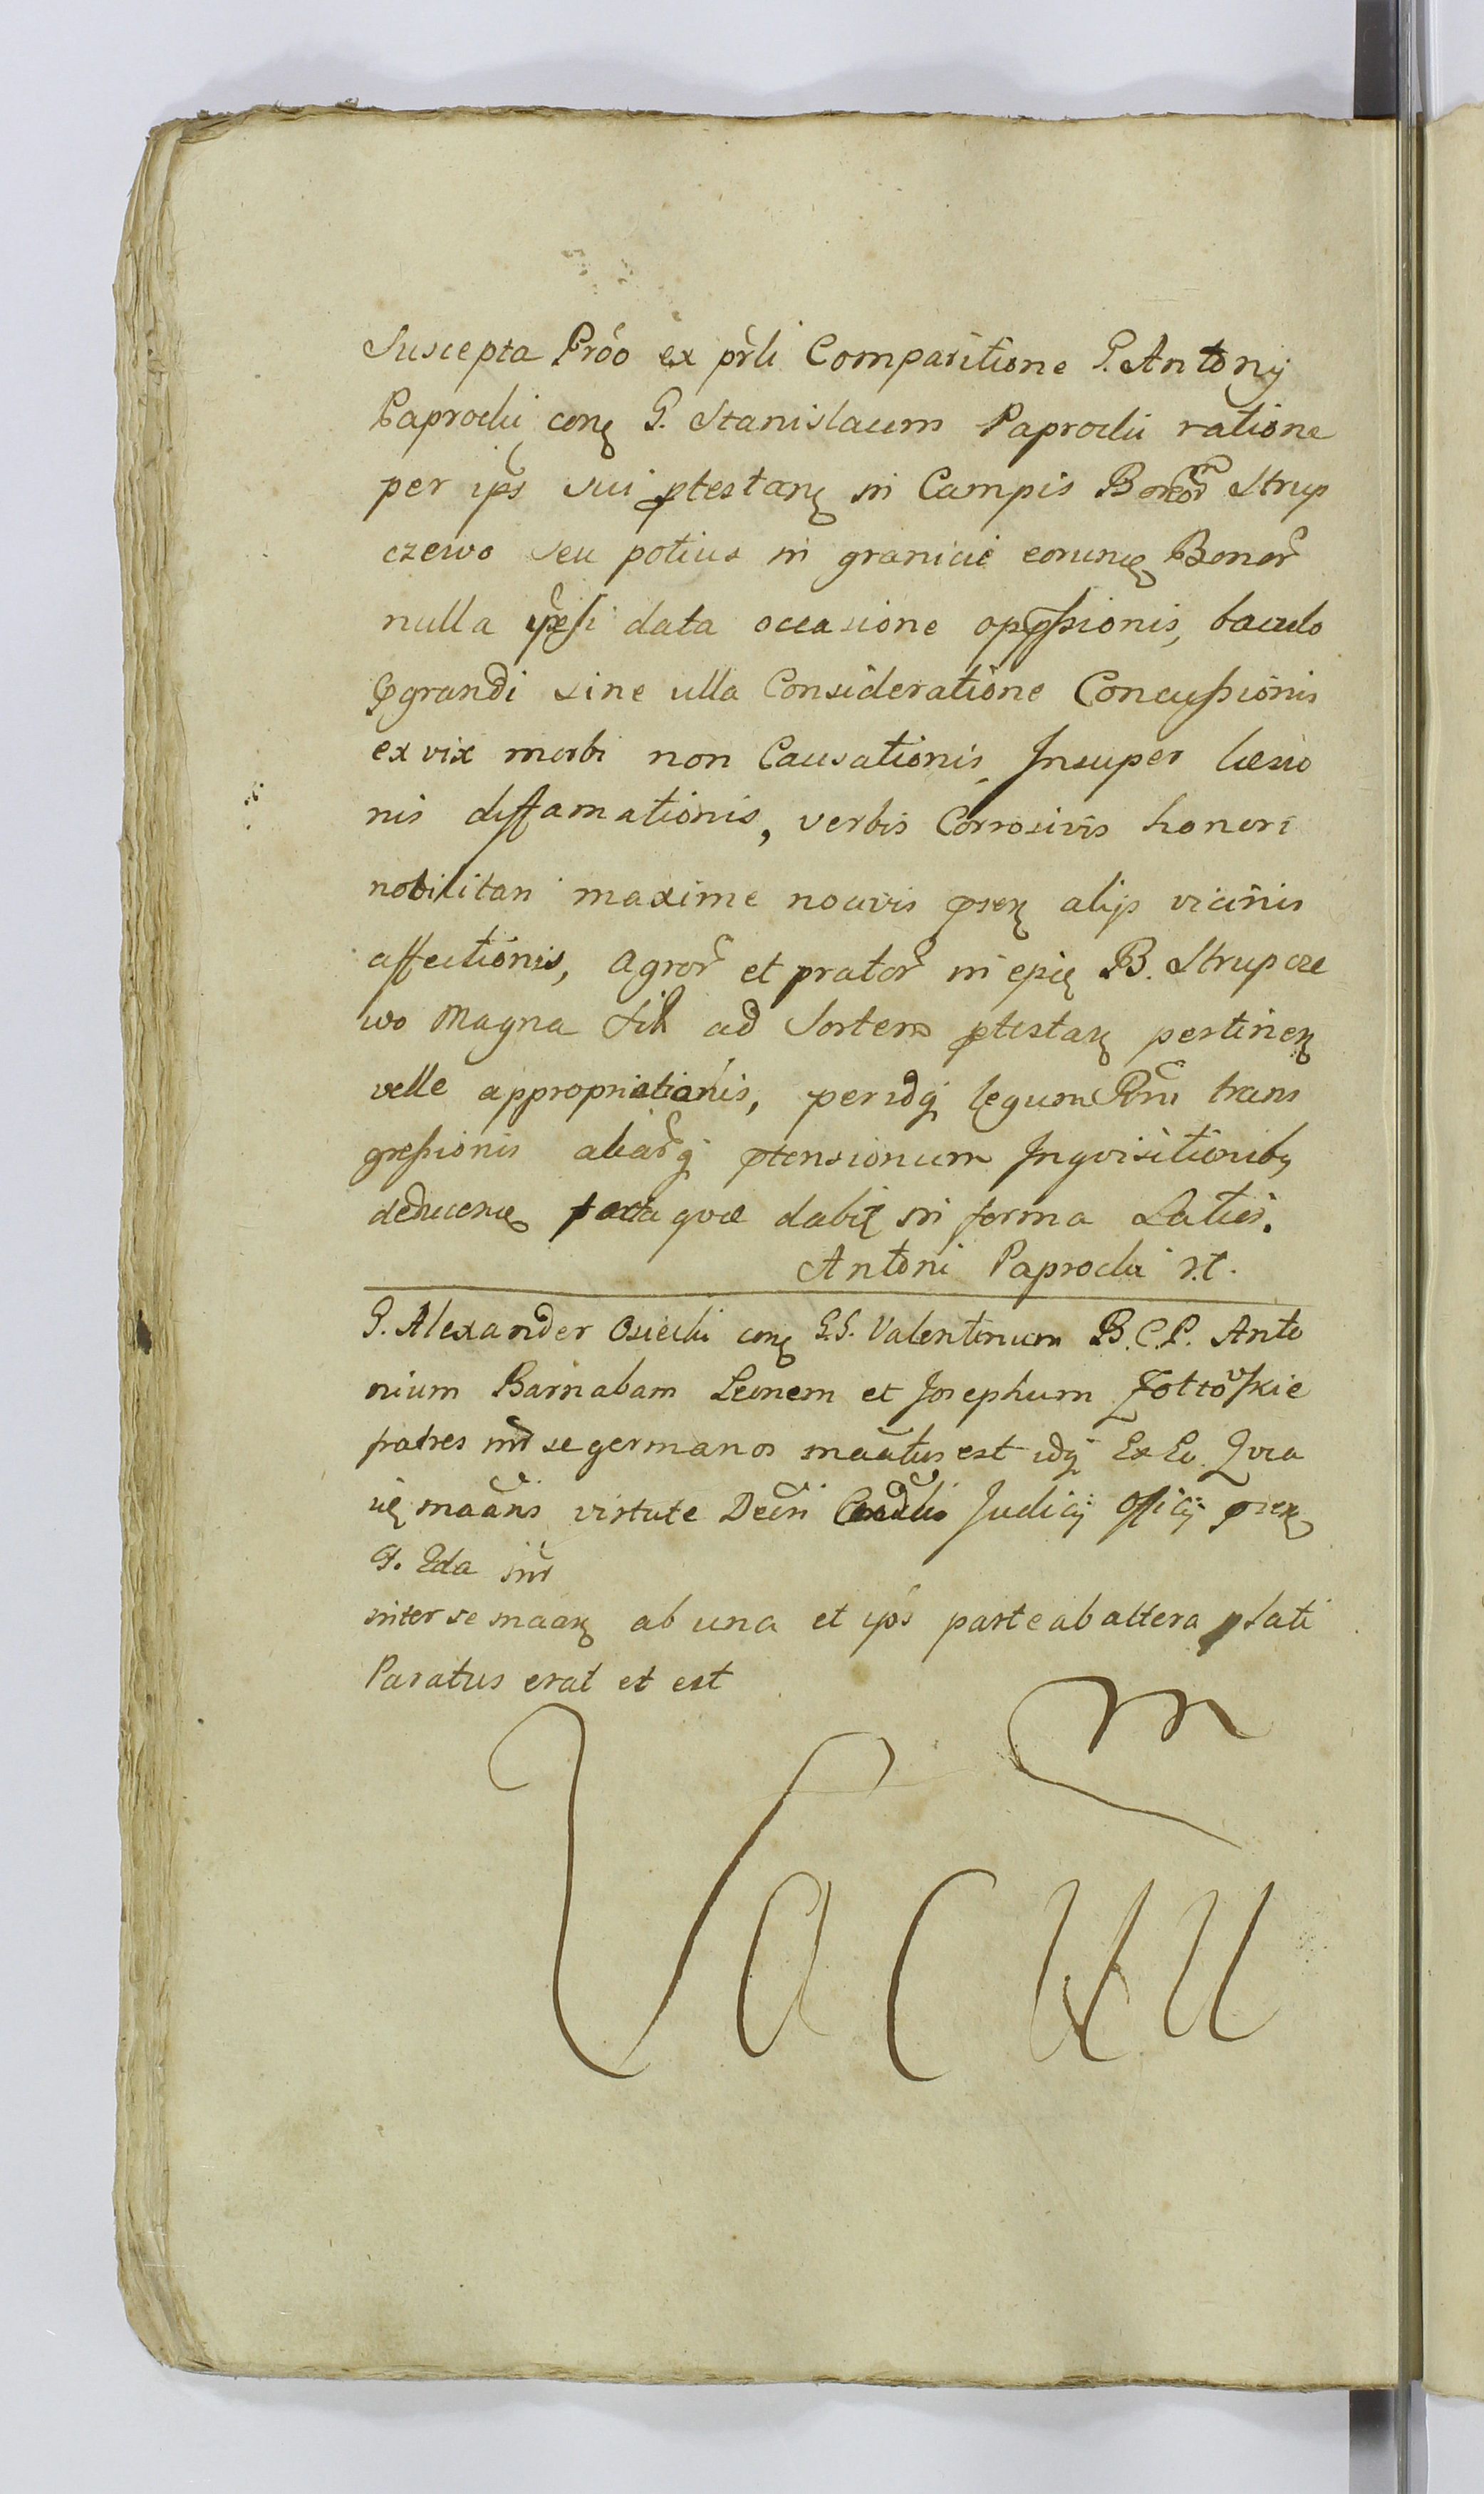 Suscepta Pró̃o ex prl̃i Comparitione G. Antonÿ
Paprocki conꝫ G. Stanislaum Paprocki ratione
per ip̃s sui ꝓtestanꝫ in Campis Bonor̃ Strup
czewo seu potius in granicie eorundꝫ Bonor̃
nulla data occasione oppꝛessionis, baculo
ꝑgrandi sine ulla Consideratione Concussionis
ex vix morbi non Causationis, Insuper læsio
nis diffamationis, verbis Corrosivis honori
nobilitari maxime nocivis pꝛsenꝫ alijs vicinis
affectionis, Agror̃ et prator̃ in B. Strupcze
wo Magna sib ad Sortem ꝓtestanꝫ pertinenꝫ
velle appropriationis, peridqꝫ legum Rñi trans
gressionis aliar̃qꝫ ꝓtensionum Inqvisitionibꝫ
deducendꝫ facta qvæ dabiꝫ in forma Latiĩ.
Antoni Paprocki r.t.
G. Alexander Osiecki conꝫ G.G. Valentinum B.C.P. Anto
nium Barnabam Leonem et Josephum Zołtow̃skie
fratres int̃ se germanos maãtus est idqꝫ Ex Eo Qvia
iꝫ maãns virtute Decr̃i Cond̃lis Judicÿ Officÿ pꝛsenꝫ
F. Eda int̃
inter se maanꝫ ab una et ip̃s parte ab altera pꝛstati
Paratus erat et est
Vacuũm